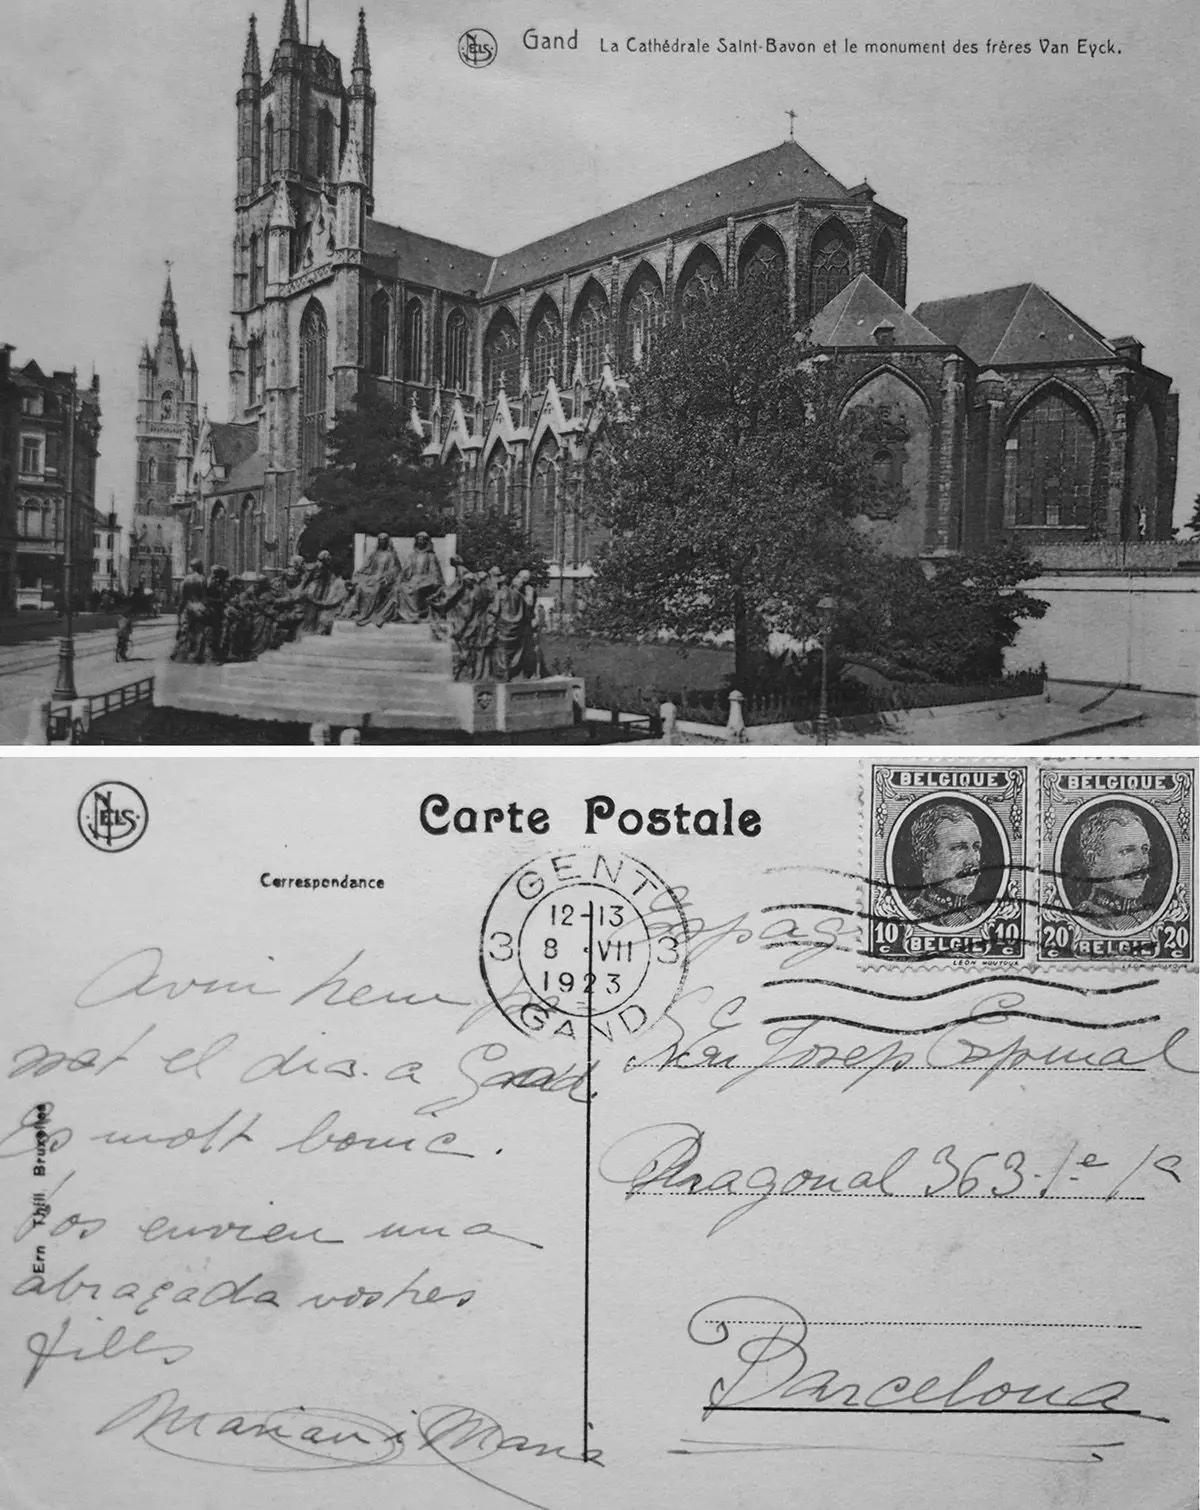 NELS
Gand La Cathédrale Saint-Bavon et le monument des frères Van Eyck.
NELS
Carte Postale
Correspondance
BELGIQUE
10c BELGIE 10c
LEON HOUYOUX
BELGIQUE
20c BELGIE 20c
LEON HOUYOUX
GENT
12-13
3 8 VII 3
1923
GAND
Ern Thill Bruxelles
Avui hem pa
sat el dia a Gand.
Es molt bonic.
Vos envien una
abraçada vostres
fills
Marian i Maria
Espag
Sr
Josep Espinal
Aragonal 363-1e 1a
Barcelona